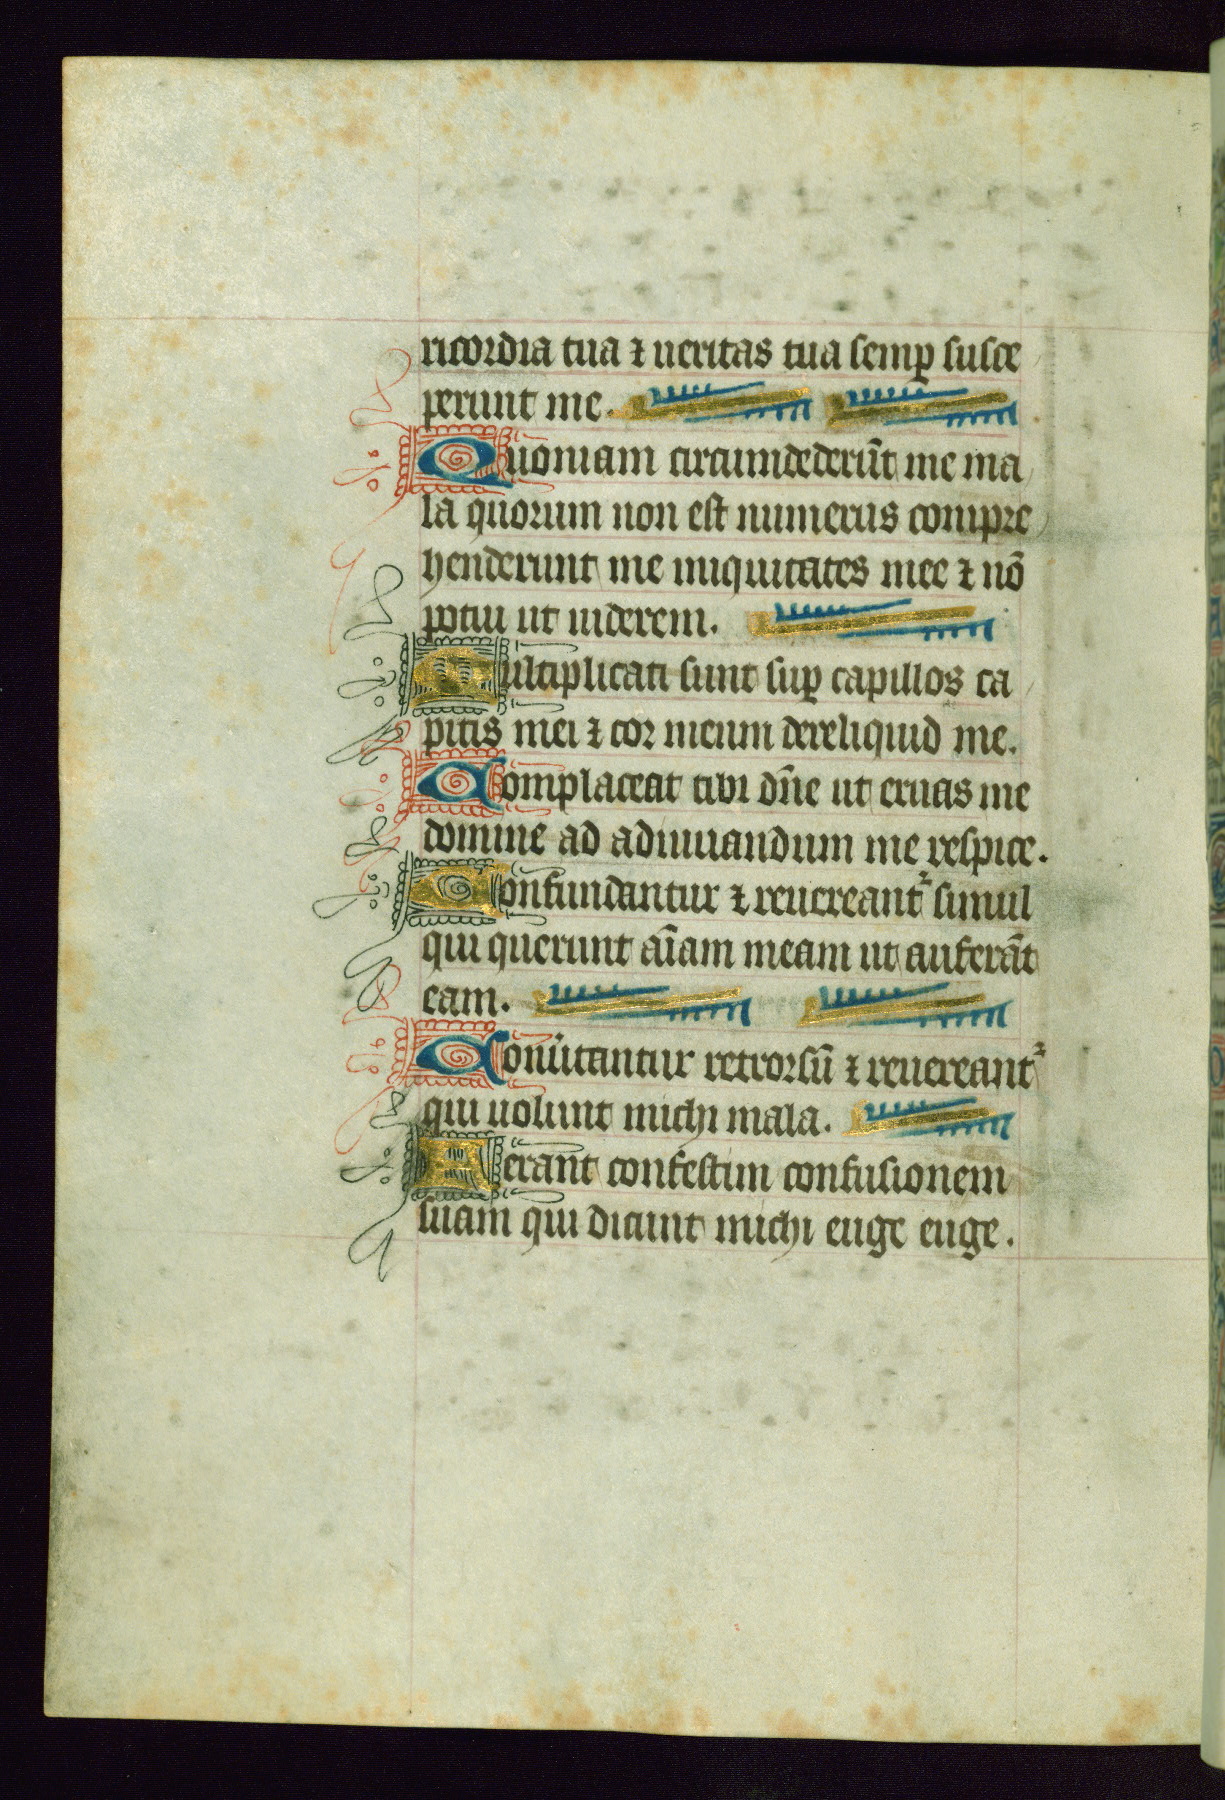 ricordia tua ⁊ ueritas tua semꝑ susce
perunt me.
Quoniam circumdederūt me ma
la quorum non est numerus compre
henderunt me iniquitates mee ⁊ nō
potui ut uiderem.
Multiplicati sunt suꝑ capillos ca
pitis mei ⁊ cor meum dereliquid me.
Complaceat tibi dn̄e ut eruas me
domine ad adiuuandum me respice.
Confundantur ⁊ reuereant᷑ simul
qui querunt aīam meam ut auferāt
eam.
Conūtantur retrorsū ⁊ reuereant᷑
qui uolunt michi mala.
Ferant confestim confusionem
suam qui dicunt michi euge euge.